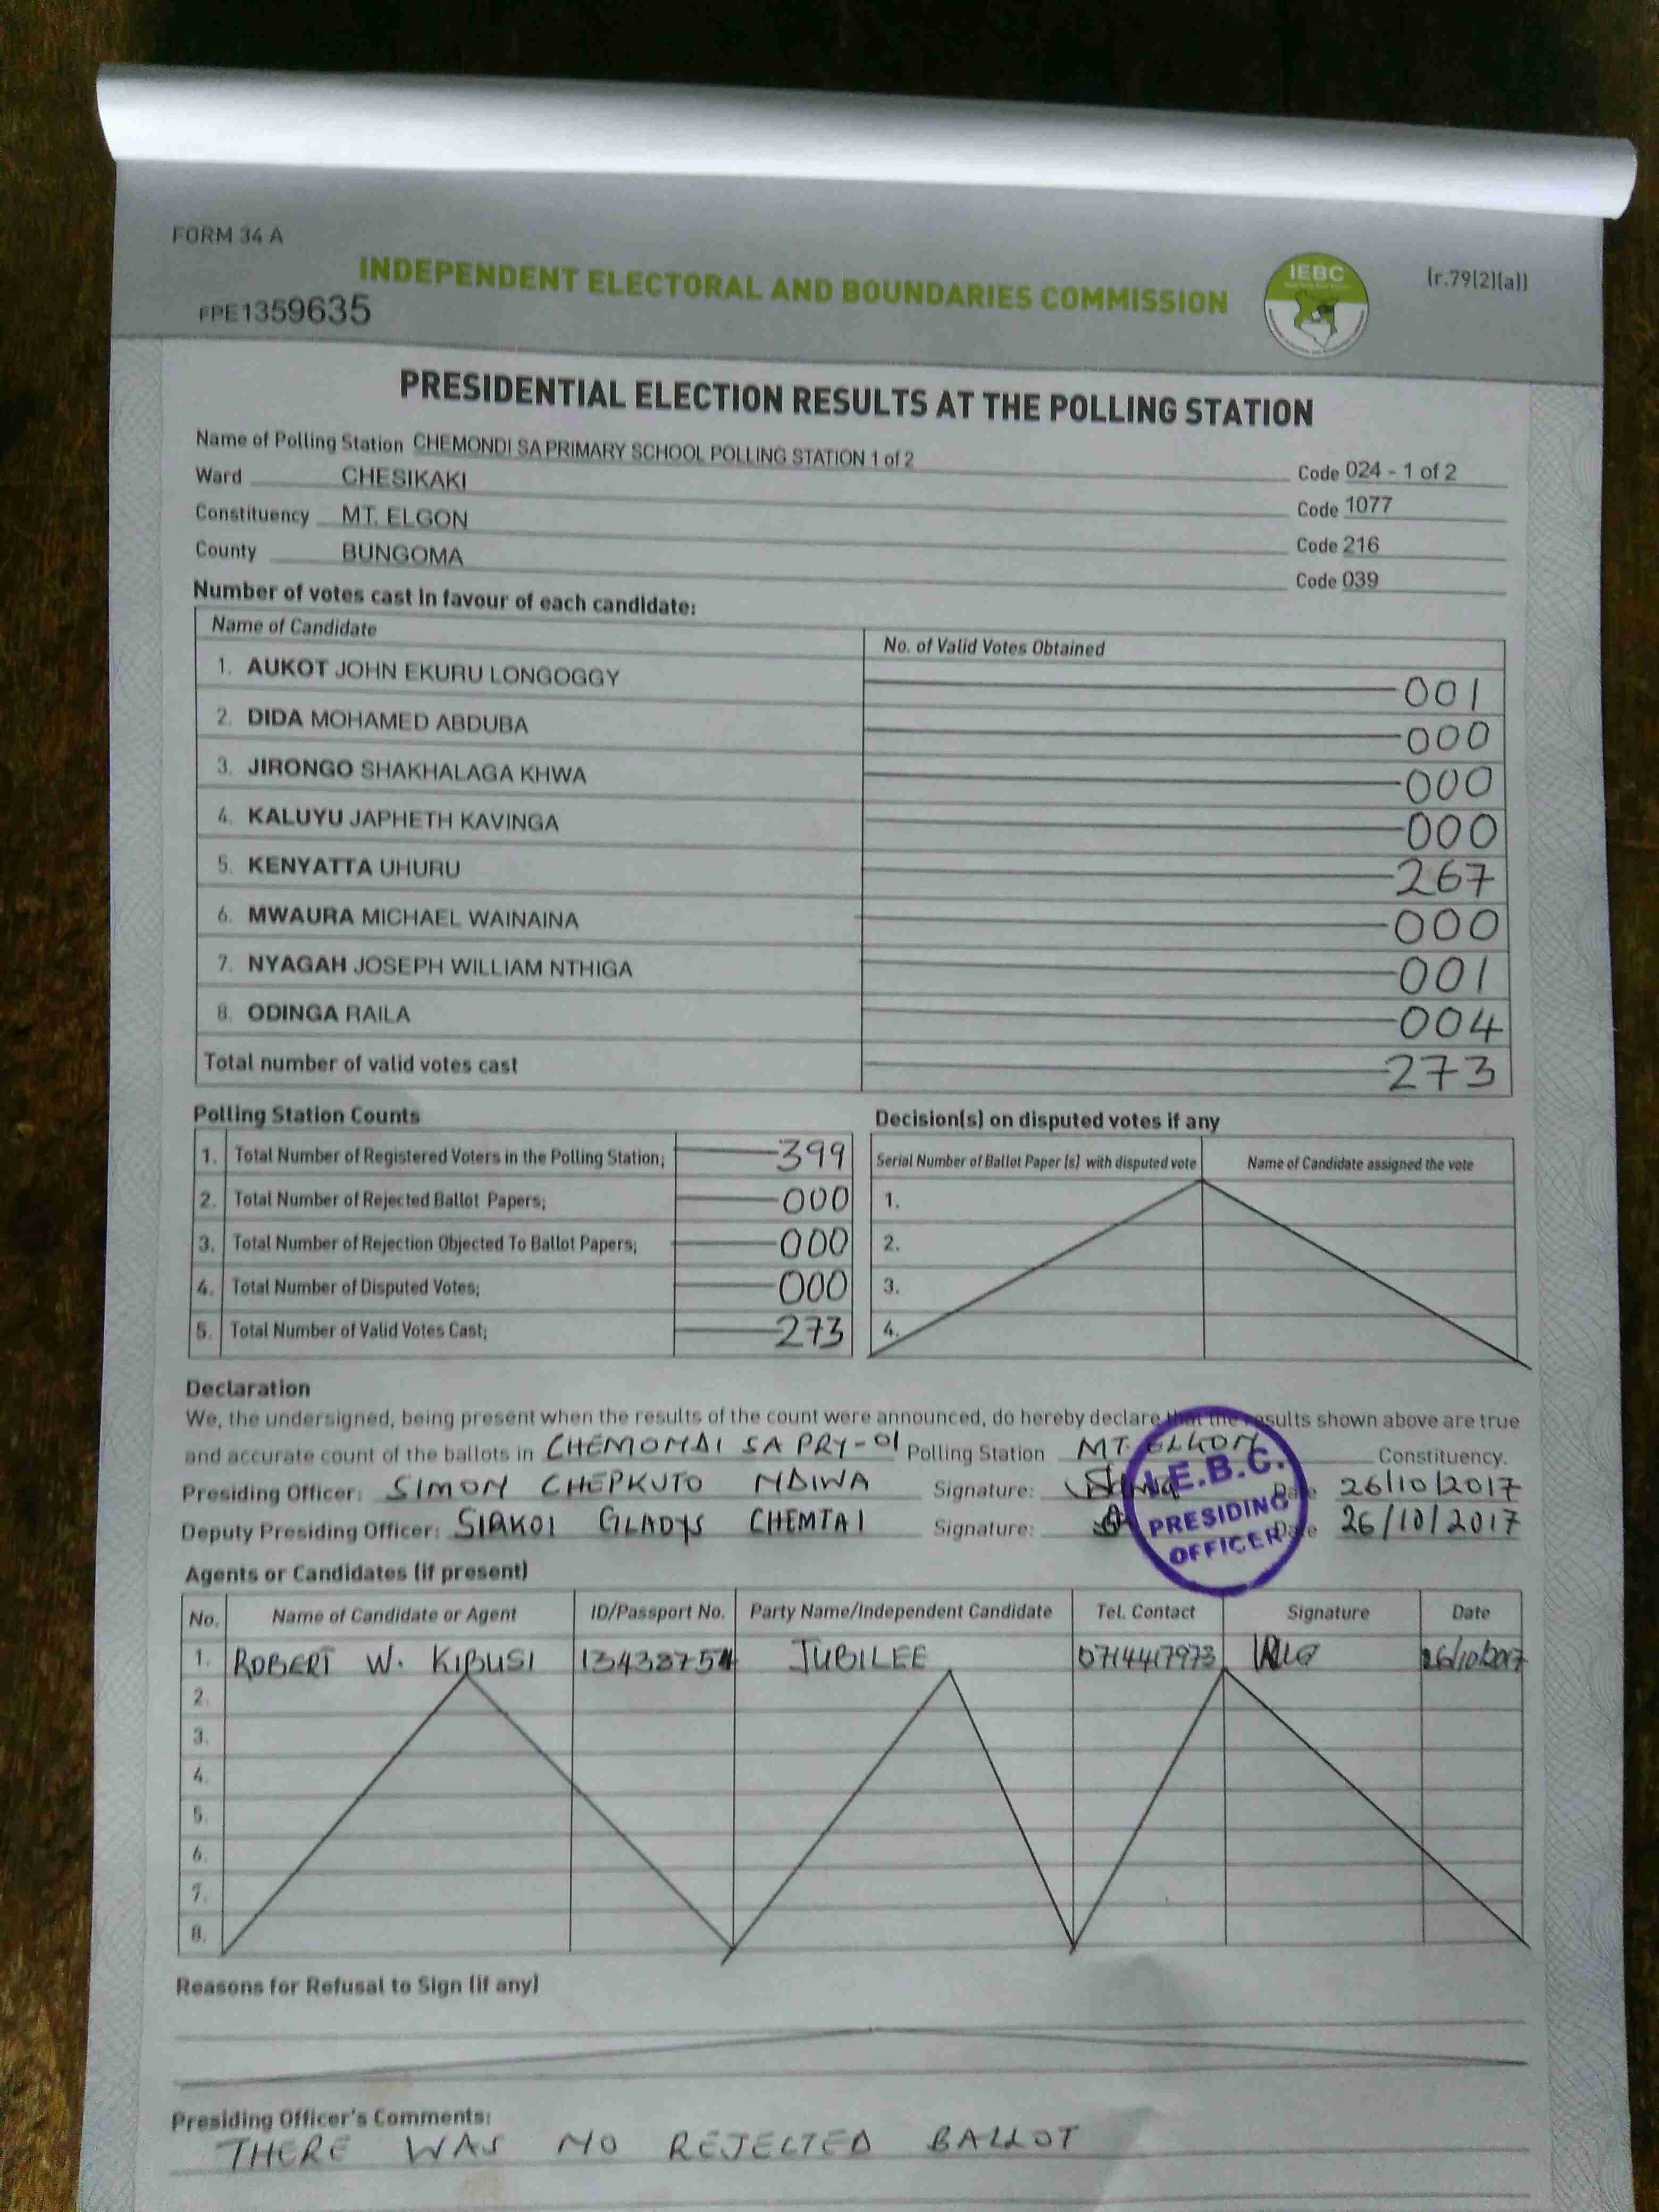 FORM 34 A
INDEPENDENT ELECTORAL AND BOUNDARIES COMMISSION
IEBC
(r.79(2)(a))
FPE1359635
PRESIDENTIAL ELECTION RESULTS AT THE POLLING STATION
Name of Polling Station CHEMONDI SA PRIMARY SCHOOL POLLING STATION 1 of 2 Code 024 - 1 of 2
Ward CHESIKAKI Code 1077
Constituency MT. ELGON Code 216
County BUNGOMA Code 039
Number of votes cast in favour of each candidate:
Name of Candidate No. of Valid Votes Obtained
1. AUKOT JOHN EKURU LONGOGGY 001
2. DIDA MOHAMED ABDUBA 000
3. JIRONGO SHAKHALAGA KHWA 000
4. KALUYU JAPHETH KAVINGA 000
5. KENYATTA UHURU 267
6. MWAURA MICHAEL WAINAINA 000
7. NYAGAH JOSEPH WILLIAM NTHIGA 001
8. ODINGA RAILA 004
Total number of valid votes cast 273
Polling Station Counts
1. Total Number of Registered Voters in the Polling Station; 399
2. Total Number of Rejected Ballot Papers; 000
3. Total Number of Rejection Objected To Ballot Papers; 000
4. Total Number of Disputed Votes; 000
5. Total Number of Valid Votes Cast; 273
Decision(s) on disputed votes if any
Serial Number of Ballot Paper (s) with disputed vote Name of Candidate assigned the vote
1.
2.
3.
4.
Declaration
We, the undersigned, being present when the results of the count were announced, do hereby declare that the results shown above are true
and accurate count of the ballots in CHEMONDI SA PRY-01 Polling Station MT. ELGON Constituency.
Presiding Officer: SIMON CHEPKUTO NDIWA Signature: Date 26/10/2017
Deputy Presiding Officer: SIRKOI GLADYS CHEMTAI Signature: Date 26/10/2017
I.E.B.C.
PRESIDING
OFFICER
Agents or Candidates (if present)
No. Name of Candidate or Agent ID/Passport No. Party Name/Independent Candidate Tel. Contact Signature Date
1. ROBERT W. KIBUSI JUBILEE 0714417973 26/10/2017
2.
3.
4.
5.
6.
7.
8.
Reasons for Refusal to Sign (if any)
Presiding Officer's Comments:
THERE WAS NO REJECTED BALLOT